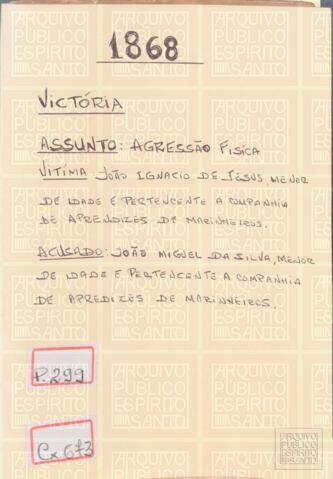 1868
VICTÓRIA
ASSUNTO: AGRESSÃO FISÍCA
VITÍMA JOÃO IGNACIO DE JESUS MENOR
DE IDADE E PERTENCENTE A COMPANHIA
DE APRENDIZES DE MARINHEIROS.
ACUSADO: JOÃO MIGUEL DA SILVA, MENOR
DE IDADE E PERTENCENTE A COMPANHIA
DE APREDIZES DE MARINHEIROS.
P. 299
Cx 673
ARQUIVO
PÚBLICO
ESPÍRITO
SANTO